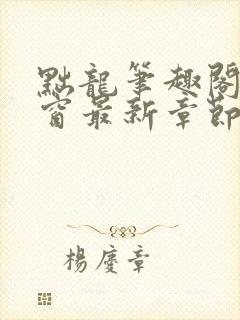 點龍筆趣閣
窗最新章節
楊慶章